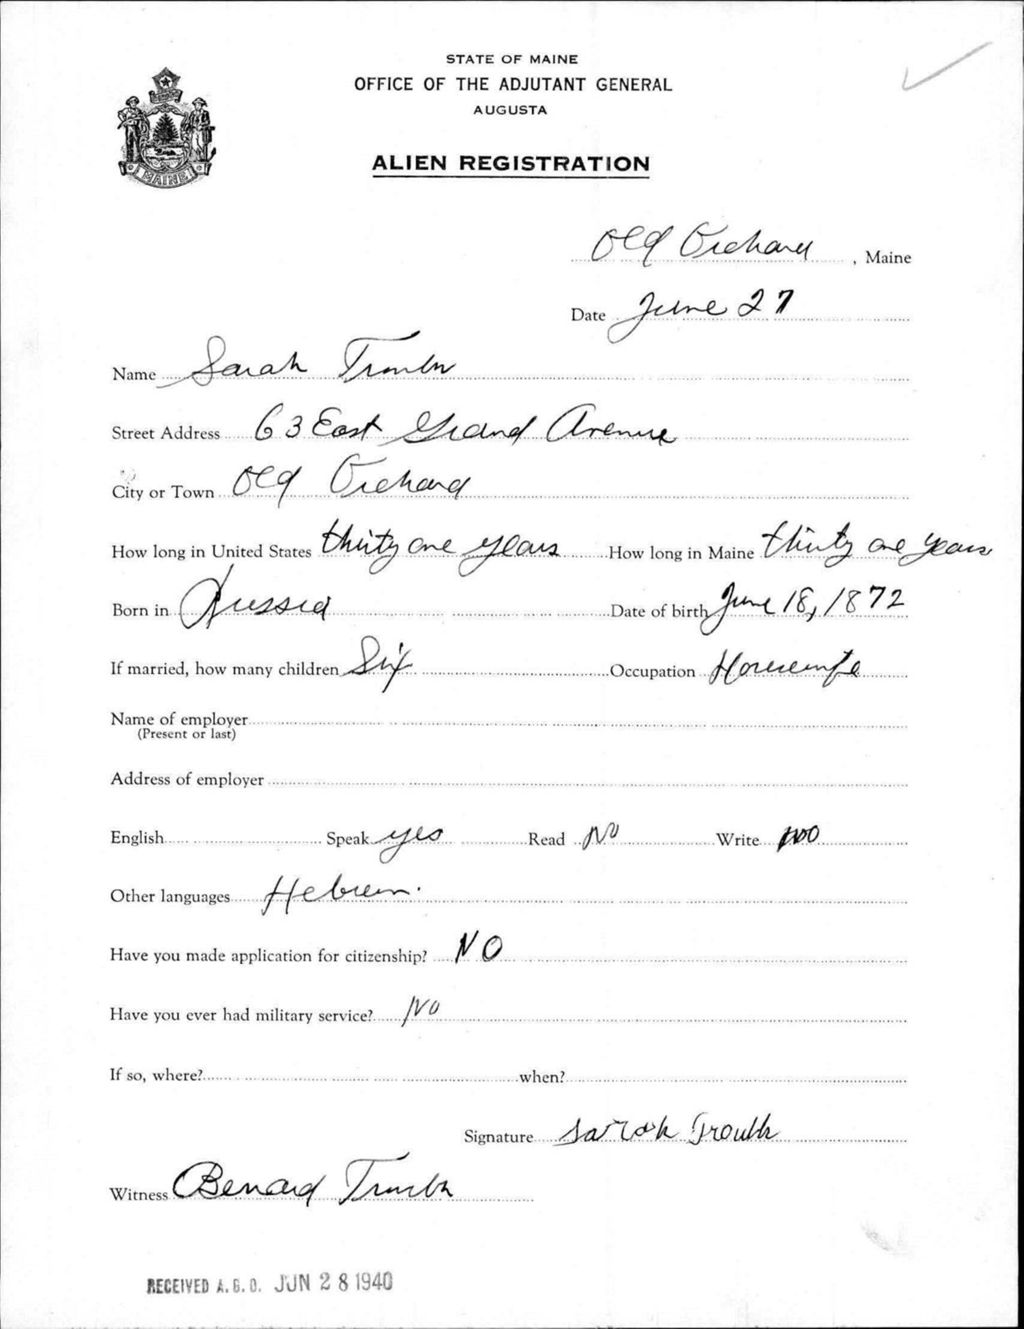 STATE OF MAINE
OFFICE OF THE ADJUTANT GENERAL
AUGUSTA
ALIEN REGISTRATION
MAINE
Old Orchard, Maine
Date June 27
Name Sarah
Street Address 63 East Grand Avenue
City or Town Old Orchard
How long in United States thirty one years How long in Maine thirty one years
Born in Russia Date of birth June 18, 1872
If married, how many children Six Occupation Housewife
Name of employer
(Present or last)
Address of employer
English Speak yes Read No Write no
Other languages Hebrew.
Have you made application for citizenship? NO
Have you ever had military service? No
If so, where? when?
Signature Sarah
Witness Benard
RECEIVED A.G.O. JUN 28 1940